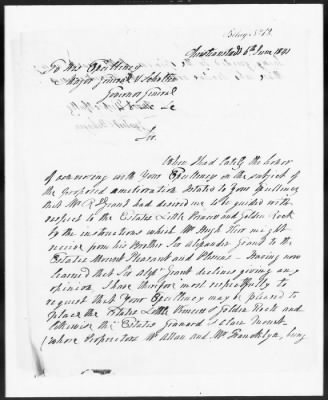 Christiansted 6th June 1841
To His Excellency
Major General V Scholten
Governor General
&c &c
Sir
When I had lately the honor
of conversing with Your Excellency on the subject of
the proposed amelioration I stated to Your Excellency
that Mr Rd Grant had desired me to be guided with
respect to the Estates Little Princess and Golden Rock
by the instructions which Mr Hugh Kerr might
receive from his Brother Sir Alexander Grant to the
Estates Mount Pleasant and Plessens. Having now
learned that Sir Alexr Grant declines giving any
opinion I have therefore most respectfully to
request that Your Excellency may be pleased to
place the Estates Little Princess & Golden Rock and
likewise the Estates Granard & Clare
(whose Proprietors Mr Allan and Mr Francklyn, being